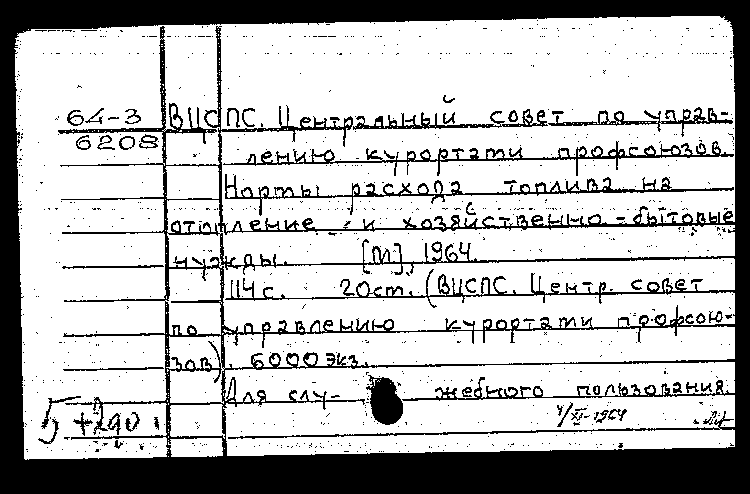 64-3 ВЦСПС. Центральный совет по управ-
6208 лению курортами профсоюзов.
Нормы расхода топлива на
отопление и хозяйственно-бытовые
нужды. [М], 1964.
114 с. 20 см. (ВЦСПС. Центр. совет
по управлению курортами профсою-
зов). 6000 экз.
Для слу- жебного пользования.
5 + 290
/XI-1964